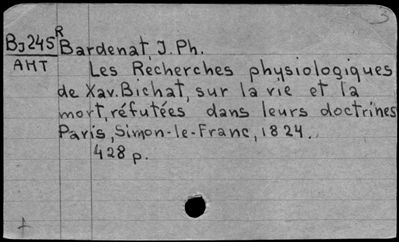 3
BJ245R Bardenat, J. Ph.
AHT Les Recherches physiologiques
de Xav. Bichat, sur la vie et la
mort, réfutées dans leurs doctrines
Paris, Simon-le-Franc, 1824.
428 p.